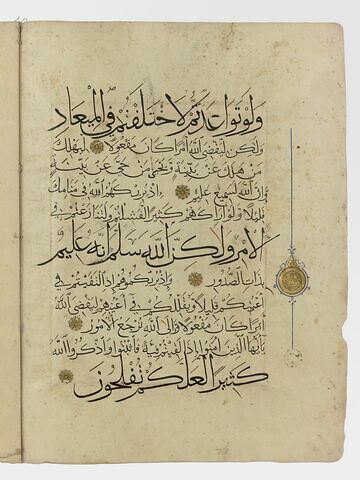 ولو تواعدتم لاختلفتم في الميعاد
ولكن ليقضي الله أمرا كان مفعولا ليهلك
من هلك عن بينة ويحيى من حي عن بينة
وإن الله لسميع عليم إذ يريكهم الله في منامك
قليلا ولو أراكهم كثيرا لفشلتم ولتنازعتم في
الأمر ولكن الله سلم إنه عليم
بذات الصدور وإذ يريكموهم إذ التقيتم في
أعينكم قليلا ويقللكم في أعينهم ليقضي الله
أمرا كان مفعولا وإلى الله ترجع الأمور
يا أيها الذين آمنوا إذا لقيتم فئة فاثبتوا واذكروا الله
كثيرا لعلكم تفلحون